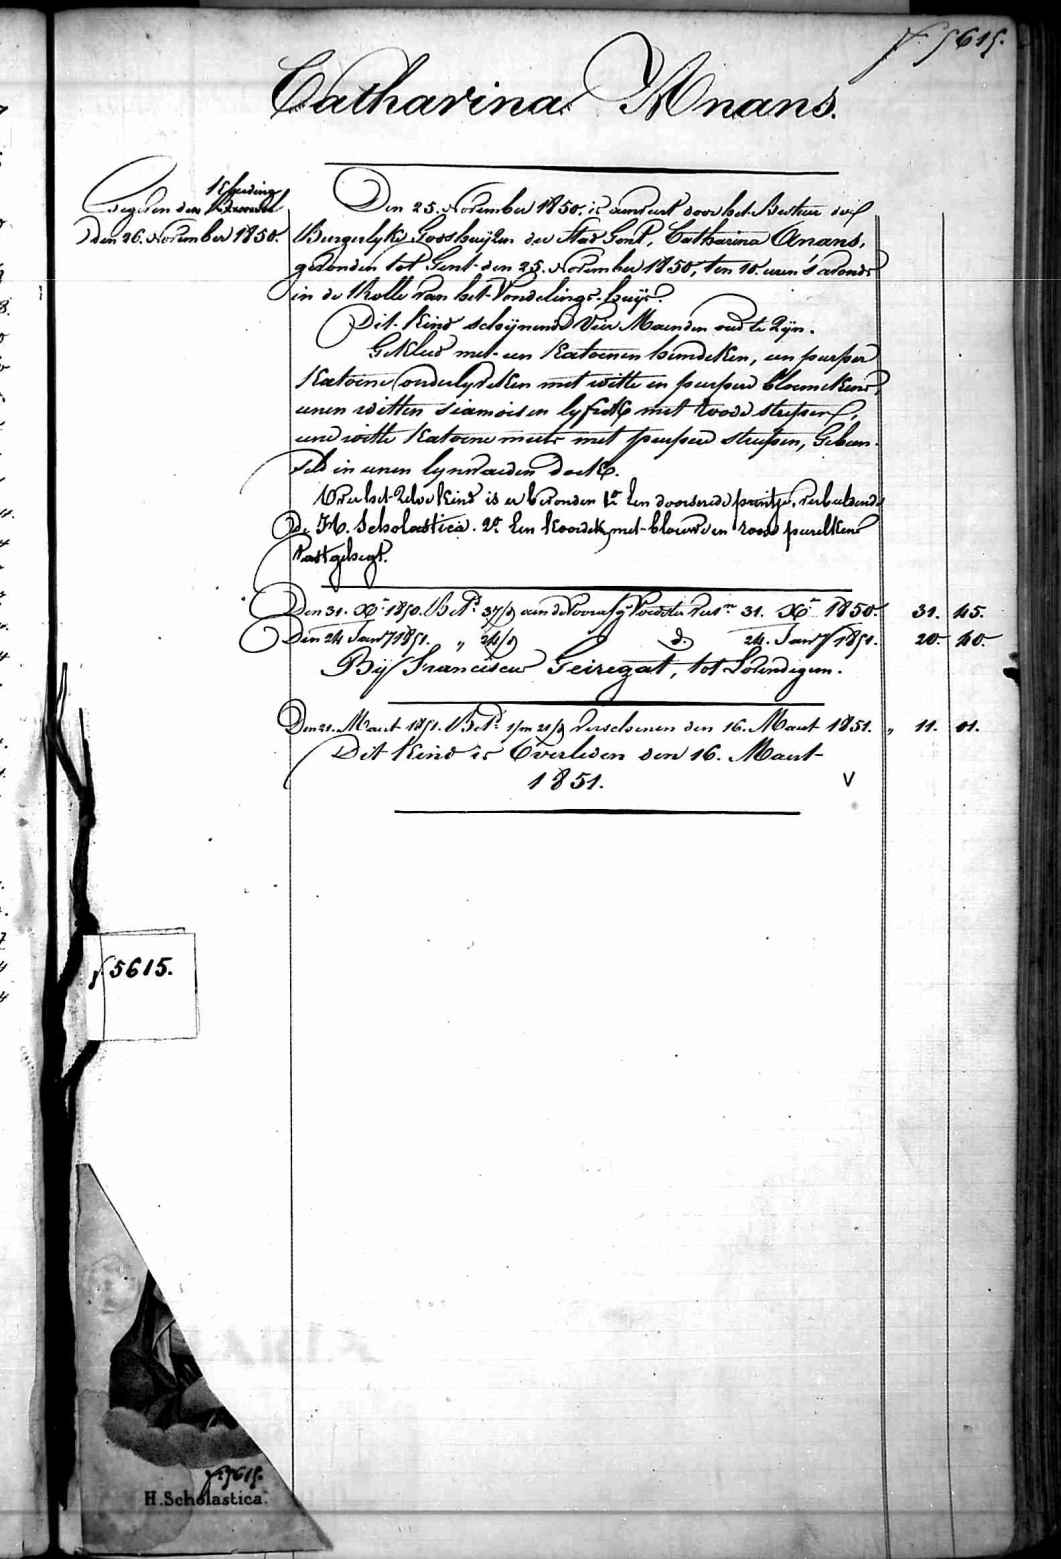 f. 5615.
Catharina Anans.
1e besteding
den 26. November 1850.
Den 25. November 1850, is aenveert door het Bestuer der
Burgerlyke Godshuyzen der Stad Gent, Catharina Anans,
gevonden tot Gent den 25. November 1850, ten 10. uren 's avonds
in de Rolle van het Vondelings-huys.
Dit Kind schynende vier Maenden oud te zyn.
Gekleed met een Katoenen hemdeken, een purper
Katoene onderlyveken met witte en purpere bloemekens,
eenen witten siamoisen lyfrok met roode strepen,
eene witte Katoene muts met purpere strepen, Gebun-
deld in eenen lynwaeden doek.
Over het zelve Kind is er bevonden 1e Een doorsnede santje, verbeeldende
de H. Scholastica. 2e Een koordeken met blauwe en roode peerelkens
vastgehegt.
Den 31. Xr 1850. Betd 37/ aen de voorsz Voedster verst 31. Xr 1850. 31. 45.
Den 24 Jany 1851. „ 24/ do 24. Jany 1851. 20. 40.
Bij Francisca Geiregat, tot Lovendegem.
Den 21. Maert 1851. Betd 1/m 21/ verschenen den 16. Maert 1851. „ 11. 01.
Dit Kind is Overleden den 16. Maert
1851. V
f 5615.
f. 5615.
H. Scholastica.